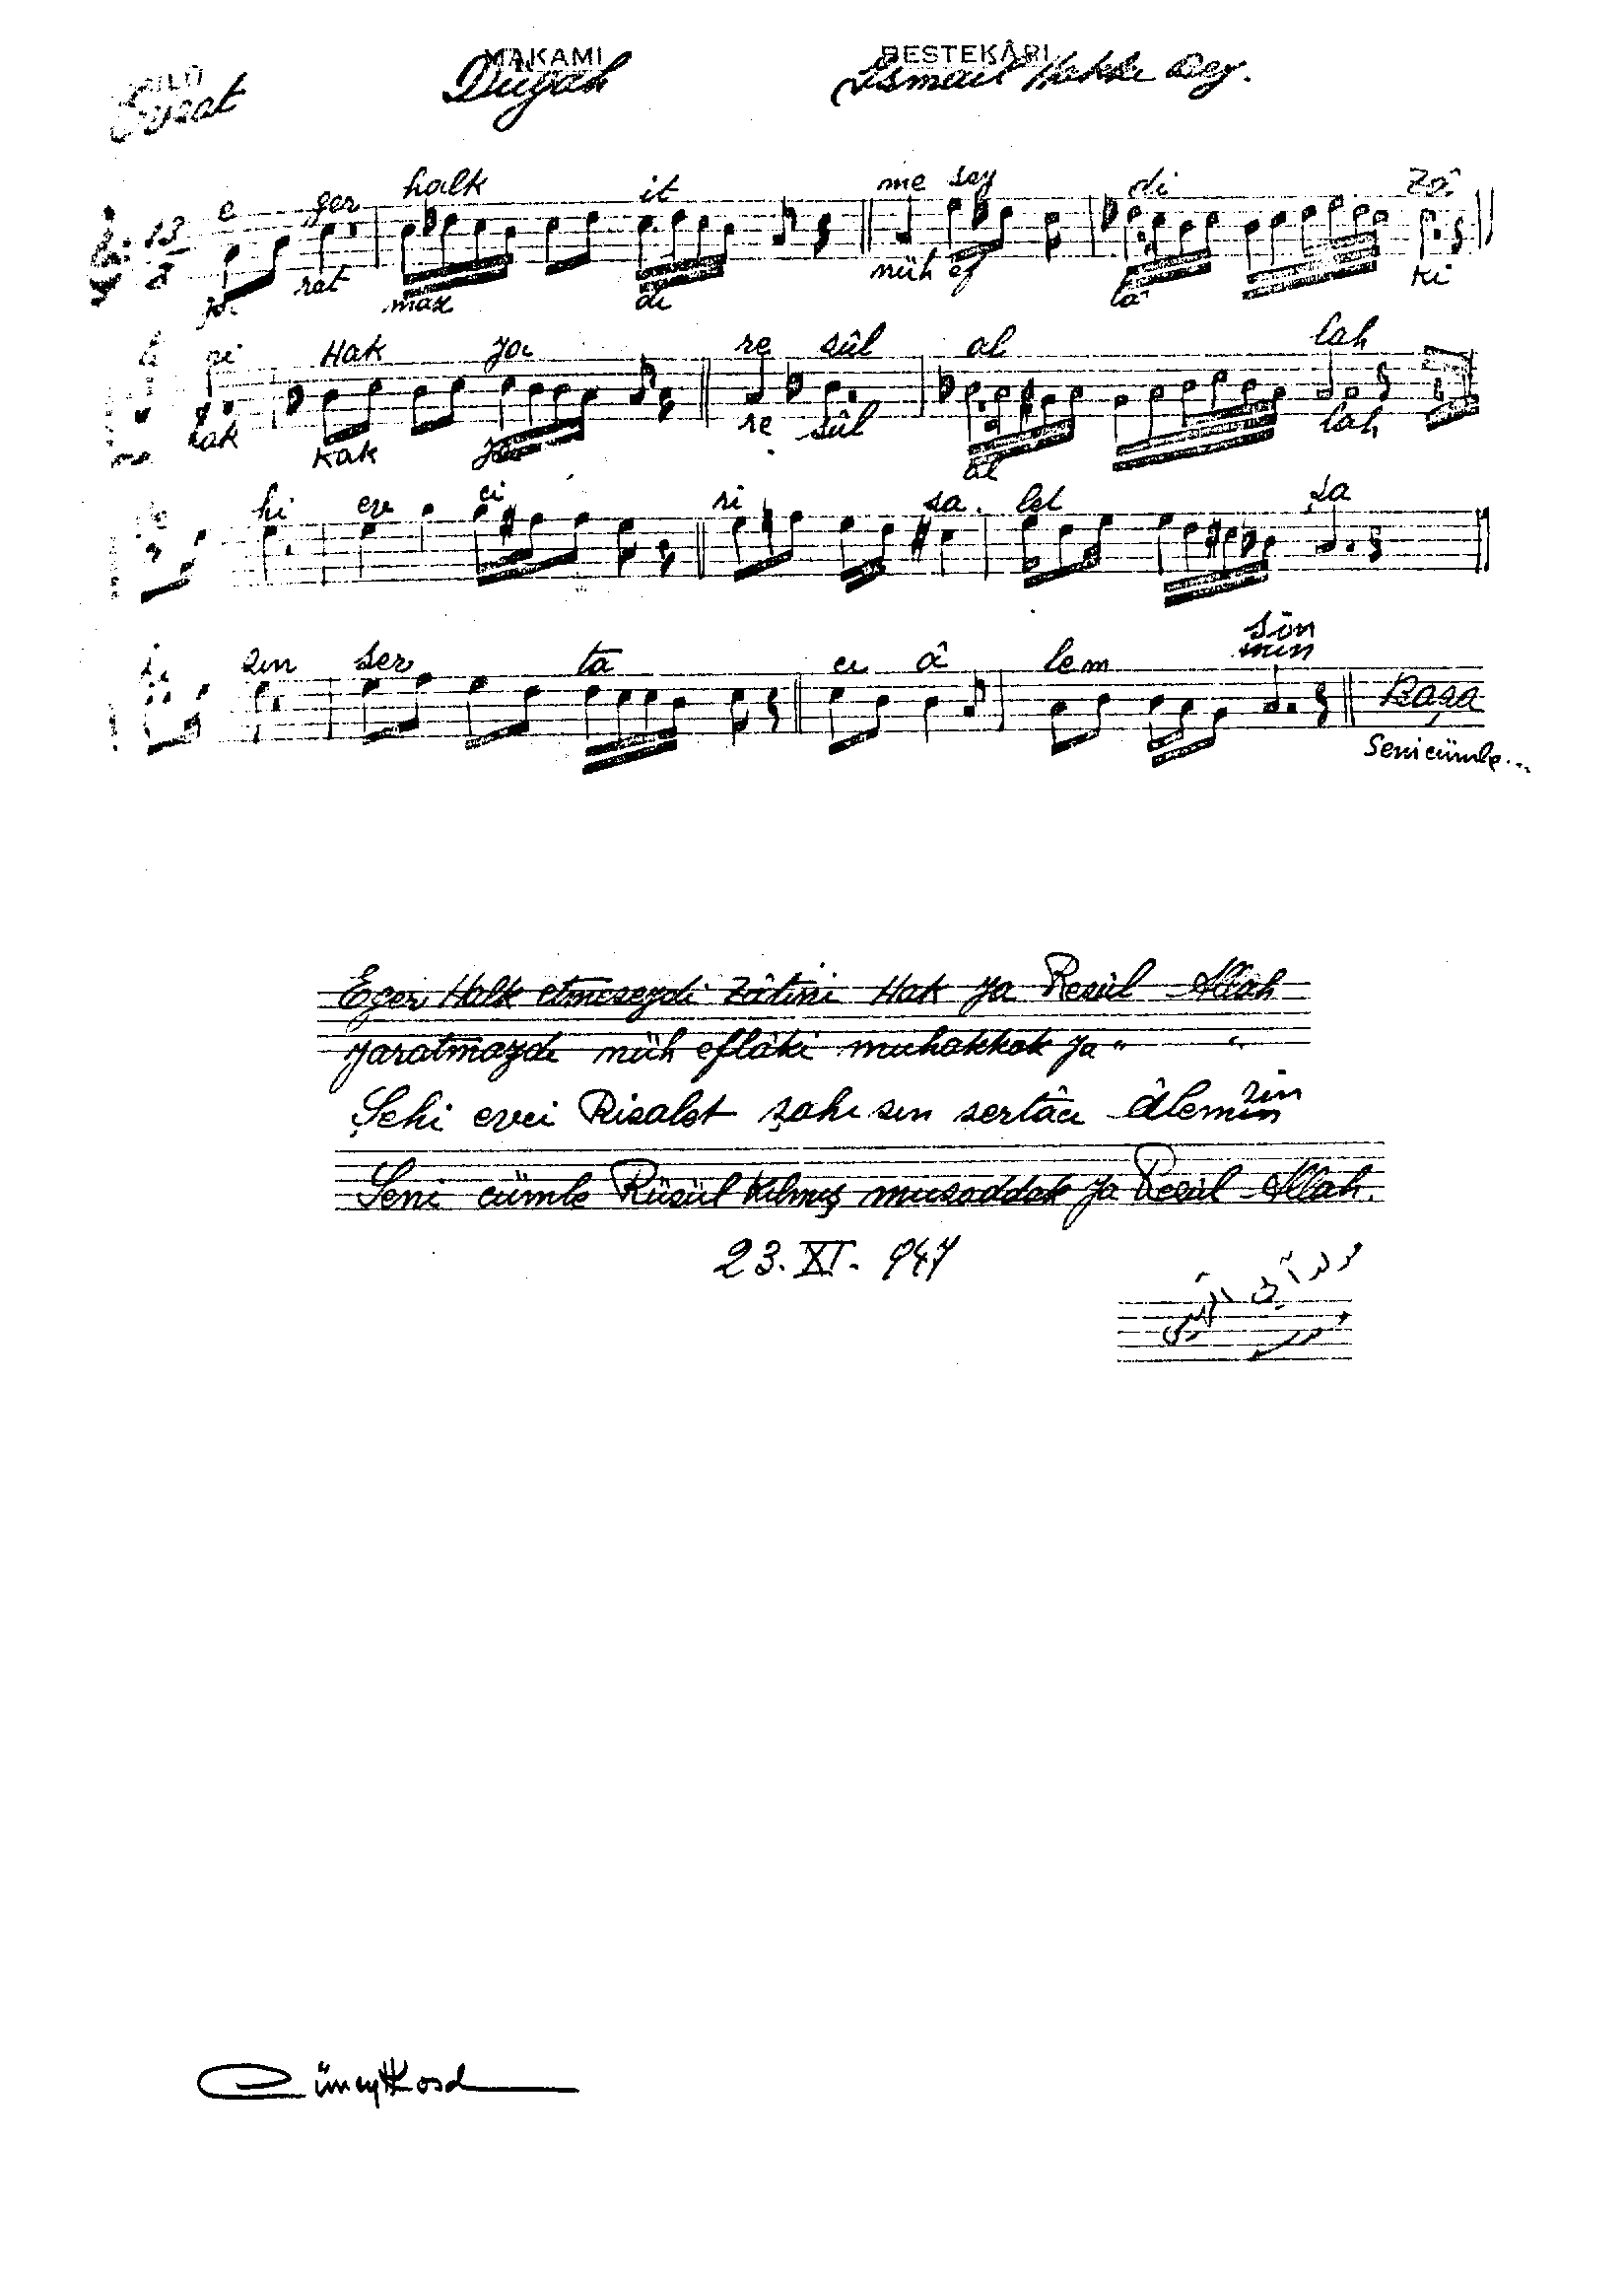 MAKAMI BESTEKÂRI
Evsat Dügâh İsmail Hakkı Bey.
e ger halk it me sey di Zâ
13
8
rat maz dı nüh ef lâ ki
ri Hak ya re sûl al lah
hak kak ya re sûl al lah
hi evc ci ri sa let şa
sın ser tâ cı â lem sın
min
Başa
Seni cümle...
Eger Halk etmeseydi Zâtini Hak ya Resûl Allah
yaratmazdı nüh eflâki muhakkak ya " "
Şehi evci Risalet şahı sın sertâcı âlemsin
min
Seni cümle Rüsül Kılmış musaddak ya Resûl Allah.
23. XI. 947